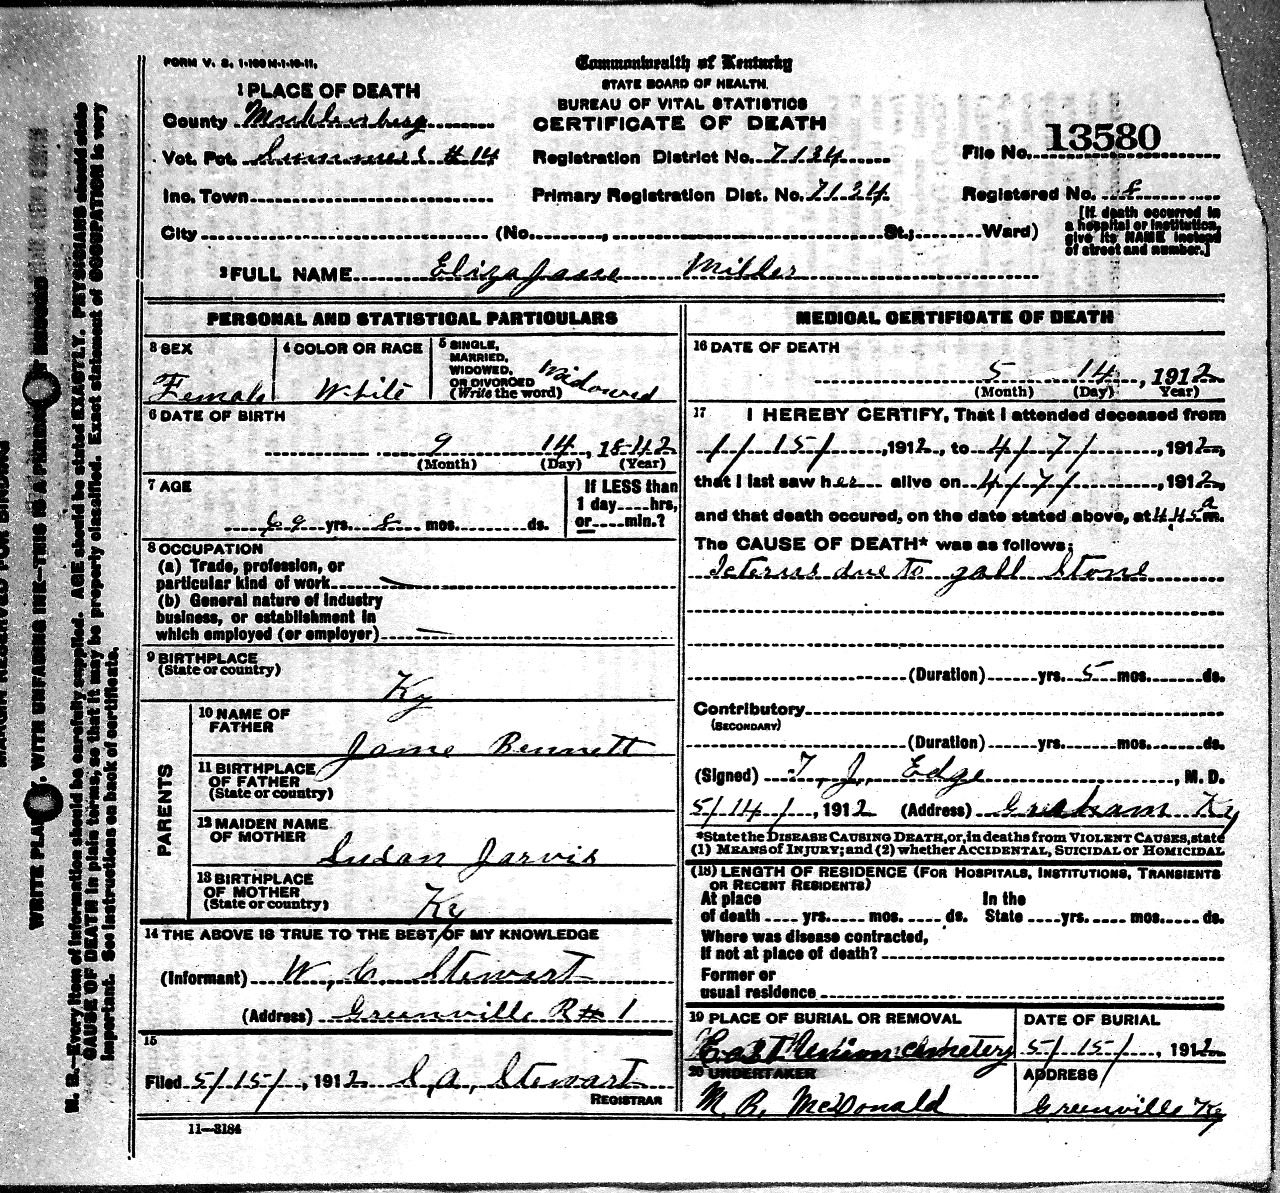 FORM V. S. 1-100 M-1-10-11.
Commonwealth of Kentucky
STATE BOARD OF HEALTH.
BUREAU OF VITAL STATISTICS
CERTIFICATE OF DEATH
1 PLACE OF DEATH
County Muhlenberg
Vot. Pct. #14
Registration District No. 7134
File No. 13580
Inc. Town
Primary Registration Dist. No. 7134
Registered No. 8
City (No. , St.; Ward)
[If death occurred in a hospital or institution, give its NAME instead of street and number.]
2 FULL NAME Eliza Jane Milder
PERSONAL AND STATISTICAL PARTICULARS
3 SEX
Female
4 COLOR OR RACE
White
5 SINGLE, MARRIED, WIDOWED, OR DIVORCED (Write the word)
Widowed
6 DATE OF BIRTH
9 14, 1842
(Month) (Day) (Year)
7 AGE
69 yrs. 8 mos. ds.
If LESS than 1 day hrs, or min.?
8 OCCUPATION
(a) Trade, profession, or
particular kind of work
(b) General nature of industry
business, or establishment in
which employed (or employer)
9 BIRTHPLACE
(State or country)
Ky
PARENTS
10 NAME OF
FATHER
Jame Bennett
11 BIRTHPLACE
OF FATHER
(State or country)
12 MAIDEN NAME
OF MOTHER
Susan Jarvis
13 BIRTHPLACE
OF MOTHER
(State or country)
Ky
14 THE ABOVE IS TRUE TO THE BEST OF MY KNOWLEDGE
(Informant) W. C. Stewart
(Address) Greenville R#1
15
Filed 5/15/, 1912 S. A. Stewart
REGISTRAR
11—3184
MEDICAL CERTIFICATE OF DEATH
16 DATE OF DEATH
5 14, 1912
(Month) (Day) Year)
17 I HEREBY CERTIFY, That I attended deceased from
1/15/, 1912, to 4/7/, 1912,
that I last saw her alive on 4/7/, 1912,
and that death occured, on the date stated above, at 445 a m.
The CAUSE OF DEATH* was as follows:
Icterus due to gall Stone
(Duration) yrs. 5 mos. ds.
Contributory
(SECONDARY)
(Duration) yrs. mos. ds.
(Signed) T. J. Edge, M. D.
5/14/, 1912 (Address) Graham Ky
*State the DISEASE CAUSING DEATH, or, in deaths from VIOLENT CAUSES, state
(1) MEANS of INJURY; and (2) whether ACCIDENTAL, SUICIDAL or HOMICIDAL
(18) LENGTH OF RESIDENCE (FOR HOSPITALS, INSTITUTIONS, TRANSIENTS
OR RECENT RESIDENTS)
At place In the
of death yrs. mos. ds. State yrs. mos. ds.
Where was disease contracted,
If not at place of death?
Former or
usual residence
19 PLACE OF BURIAL OR REMOVAL
East Union Cemetery
DATE OF BURIAL
5/15/, 1912
20 UNDERTAKER
M. R. McDonald
ADDRESS
Greenville Ky
MARGIN RESERVED FOR BINDING
WITH UNFADING INK—THIS IS A
N. B.—Every item of information should be carefully supplied. AGE should be stated EXACTLY. PHYSICIANS should state
CAUSE OF DEATH in plain terms, so that it may be properly classified. Exact statement of OCCUPATION is very
important. See instructions on back of certificate.